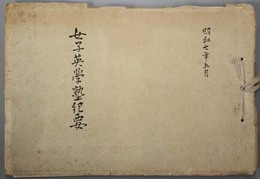 昭和七年五月
女子英學塾紀要